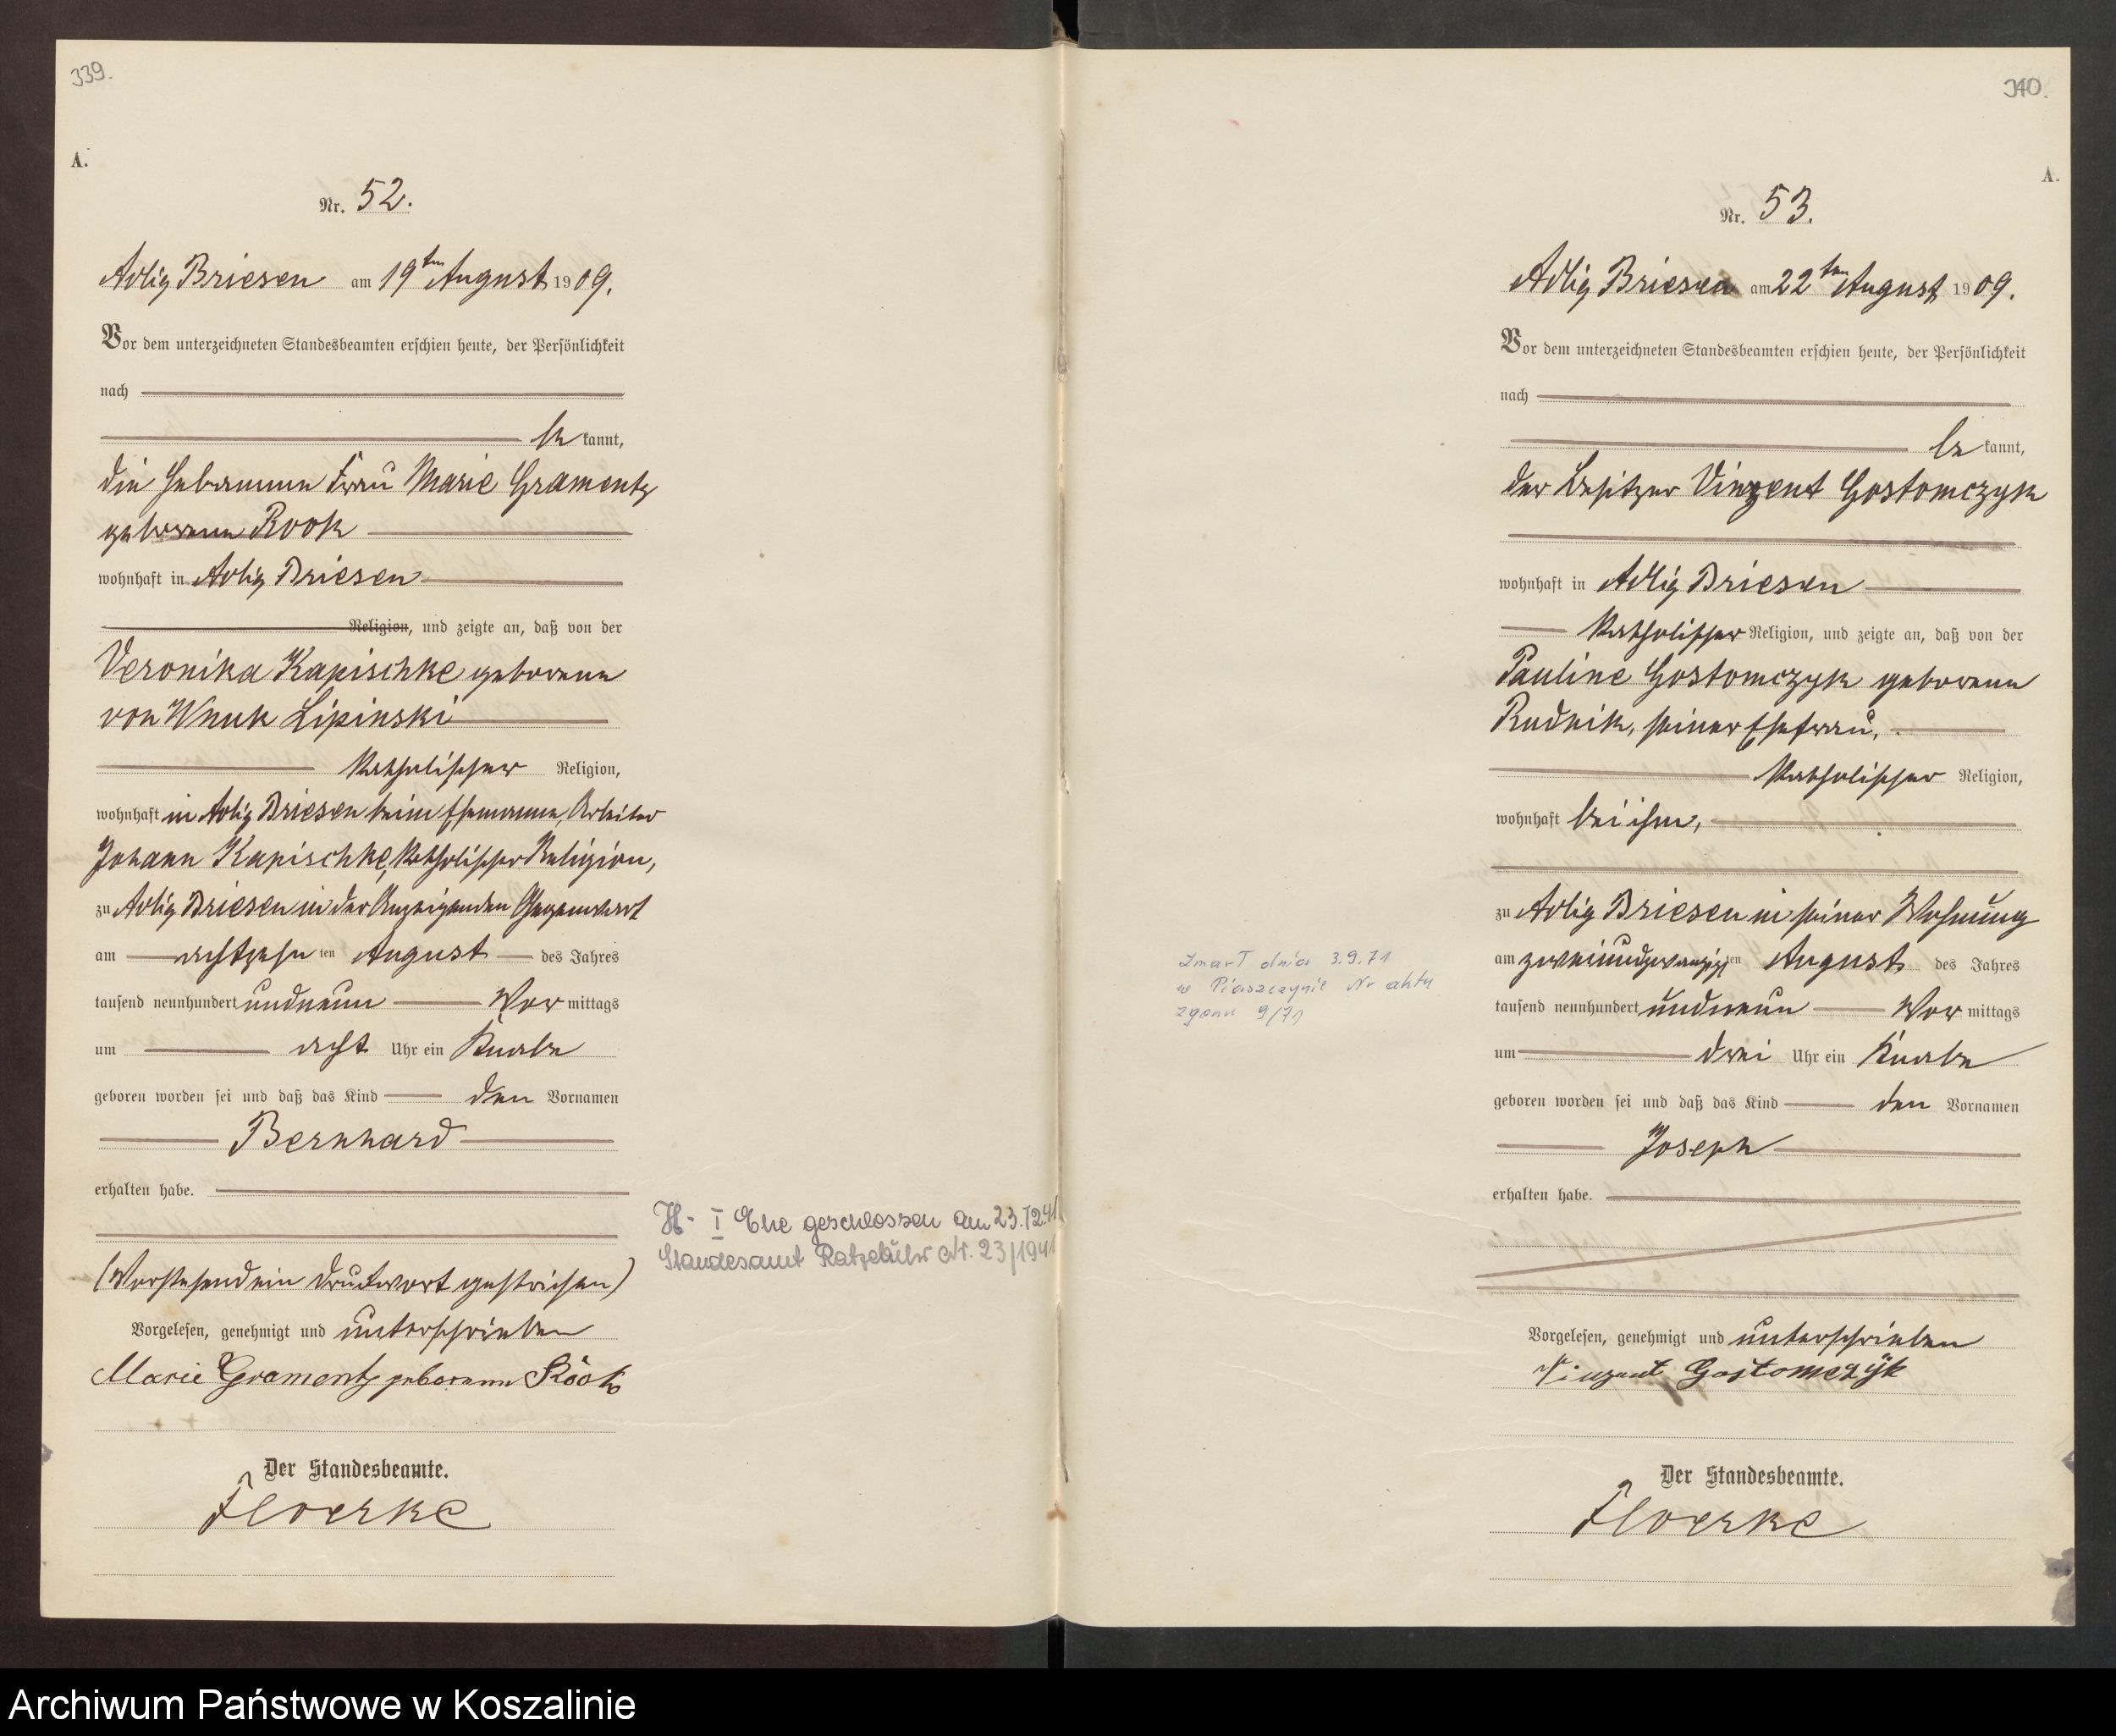 339.
A.
Nr. 52.
Adlig Briesen am 19ten August 1909.
Vor dem unterzeichneten Standesbeamten erschien heute, der Persönlichkeit
nach
bekannt,
die Hebamme Frau Marie Gramentz
geborene Rook
wohnhaft in Adlig Briesen
Religion, und zeigte an, daß von der
Veronika Kapischke geborene
von Wnuk Lipinski
katholischer Religion,
wohnhaft in Adlig Briesen beim Ehemanne, Arbeiter
Johann Kapischke, katholischer Religion,
zu Adlig Briesen in der Anzeigenden Gegenwart
am achtzehnten August des Jahres
tausend neunhundert und neun Vormittags
um acht Uhr ein Knabe
geboren worden sei und daß das Kind den Vornamen
Bernhard
erhalten habe.
(Vorstehend ein Druckwort gestrichen)
Vorgelesen, genehmigt und unterschrieben
Marie Gramentz geborene Rook
Der Standesbeamte.
Floerke
H- I Ehe geschlossen am 23.12.41
Standesamt Ratzebuhr Nr. 23/1941
340.
A.
Nr. 53.
Adlig Briesen am 22ten August 1909.
Vor dem unterzeichneten Standesbeamten erschien heute, der Persönlichkeit
nach
bekannt,
der Besitzer Vinzent Gostomczyk
wohnhaft in Adlig Briesen
katholischer Religion, und zeigte an, daß von der
Pauline Gostomczyk geborene
Rudnik, seiner Ehefrau,
katholischer Religion,
wohnhaft bei ihm,
zu Adlig Briesen in seiner Wohnung
am zweiundzwanzigsten August des Jahres
tausend neunhundert und neun Vormittags
um drei Uhr ein Knabe
geboren worden sei und daß das Kind den Vornamen
Joseph
erhalten habe.
Vorgelesen, genehmigt und unterschrieben
Vinzent Gostomczyk
Der Standesbeamte.
Floerke
zmarł dnia 3.9.71
w Piaszczynie Nr aktu
zgonu 9/71
Archiwum Państwowe w Koszalinie